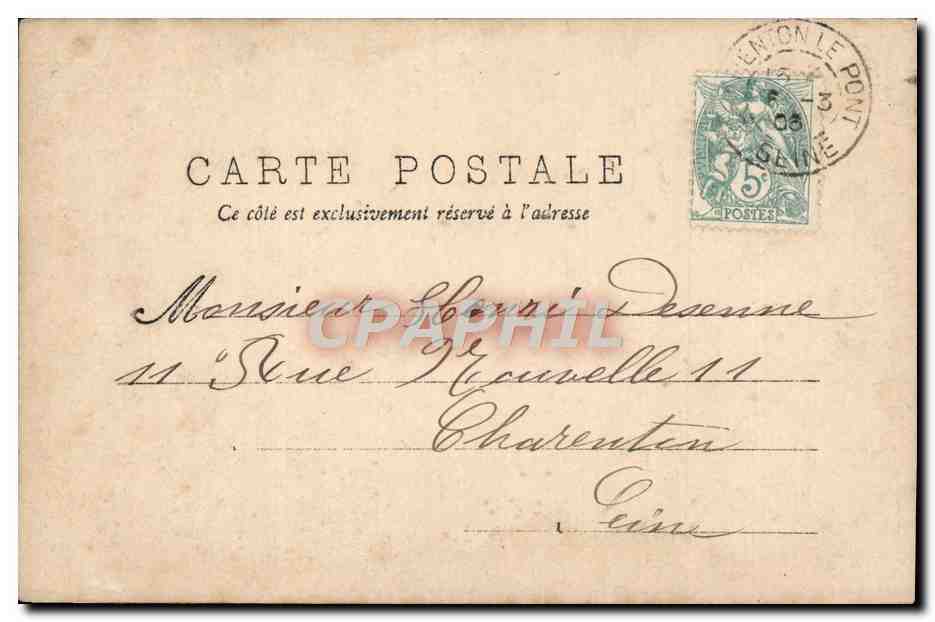 CARTE POSTALE
Ce côté est exclusivement réservé à l'adresse
ENTON LE PONT
-3
SEINE
5c
POSTES
CPAPHIL
Monsieur Henri Desenne
11 Rue Nouvelle 11
Charenton
Seine